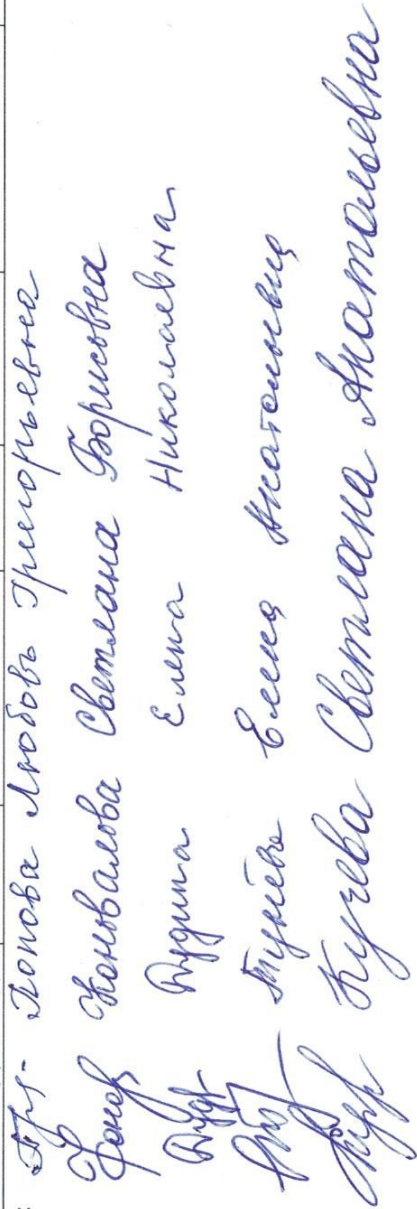 Попова Любовь Григорьевна
Коновалова Светлана Борисовна
Дудина Елена Николаевна
Елена Анатольевна
Кучева Светлана Анатольевна